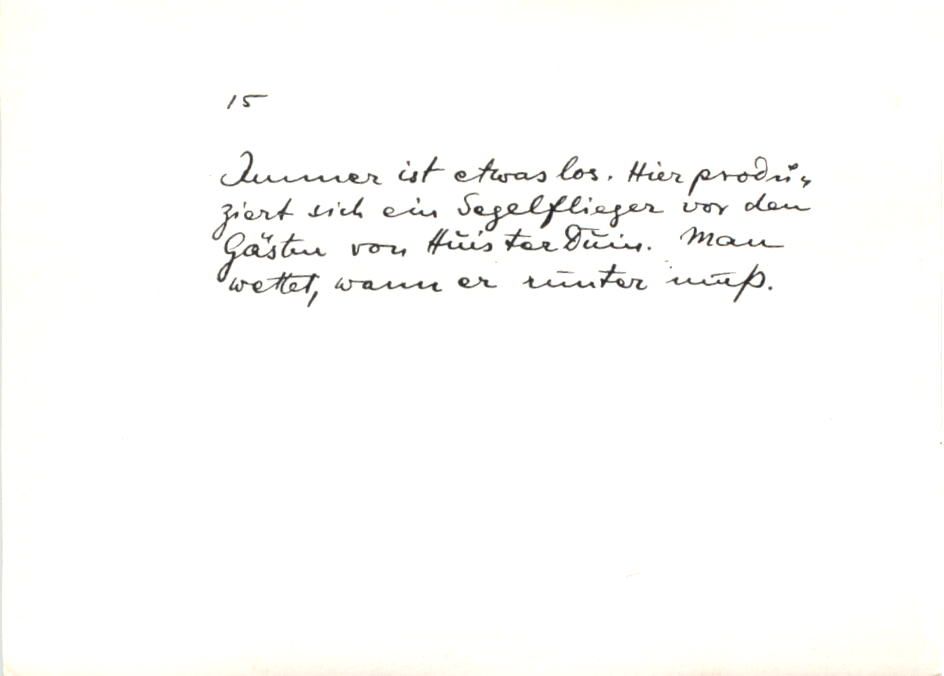 15
Immer ist etwas los. Hier produ-
ziert sich ein Segelflieger vor den
Gästen von Huis ter Duin. Man
wettet, wann er runter muß.